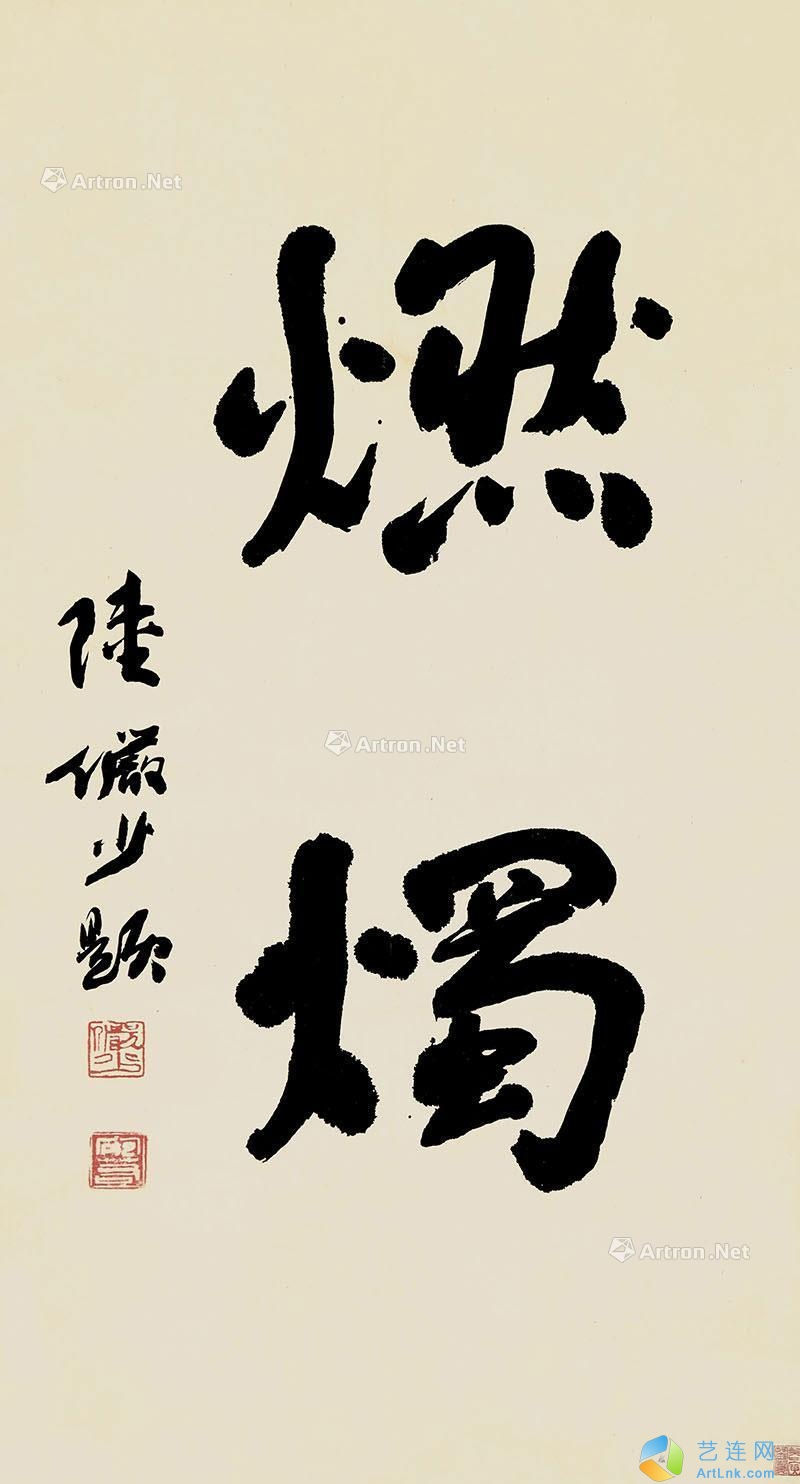 燃燭
陸儼少題
Artron.Net
Artron.Net
Artron.Net
艺连网
ArtLnk.com